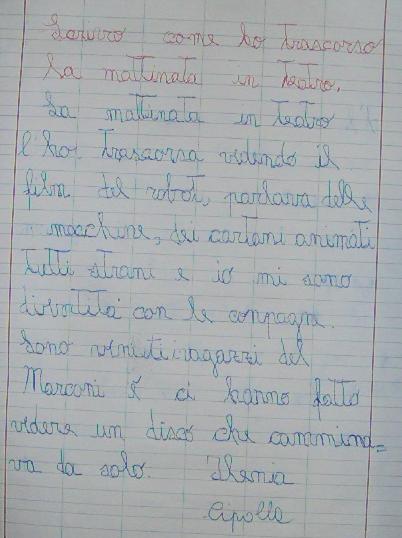 Scrivo come ho trascorso
la mattinata in teatro.
La mattinata in teatro
l'ho trascorsa vedendo il
film del robot, parlava delle
macchine, dei cartoni animati
tutti strani e io mi sono
divertita con le compagne.
Sono venuti i ragazzi del
Marconi e ci hanno fatto
vedere un disco che cammina=
va da solo. Ilenia
Cipolla